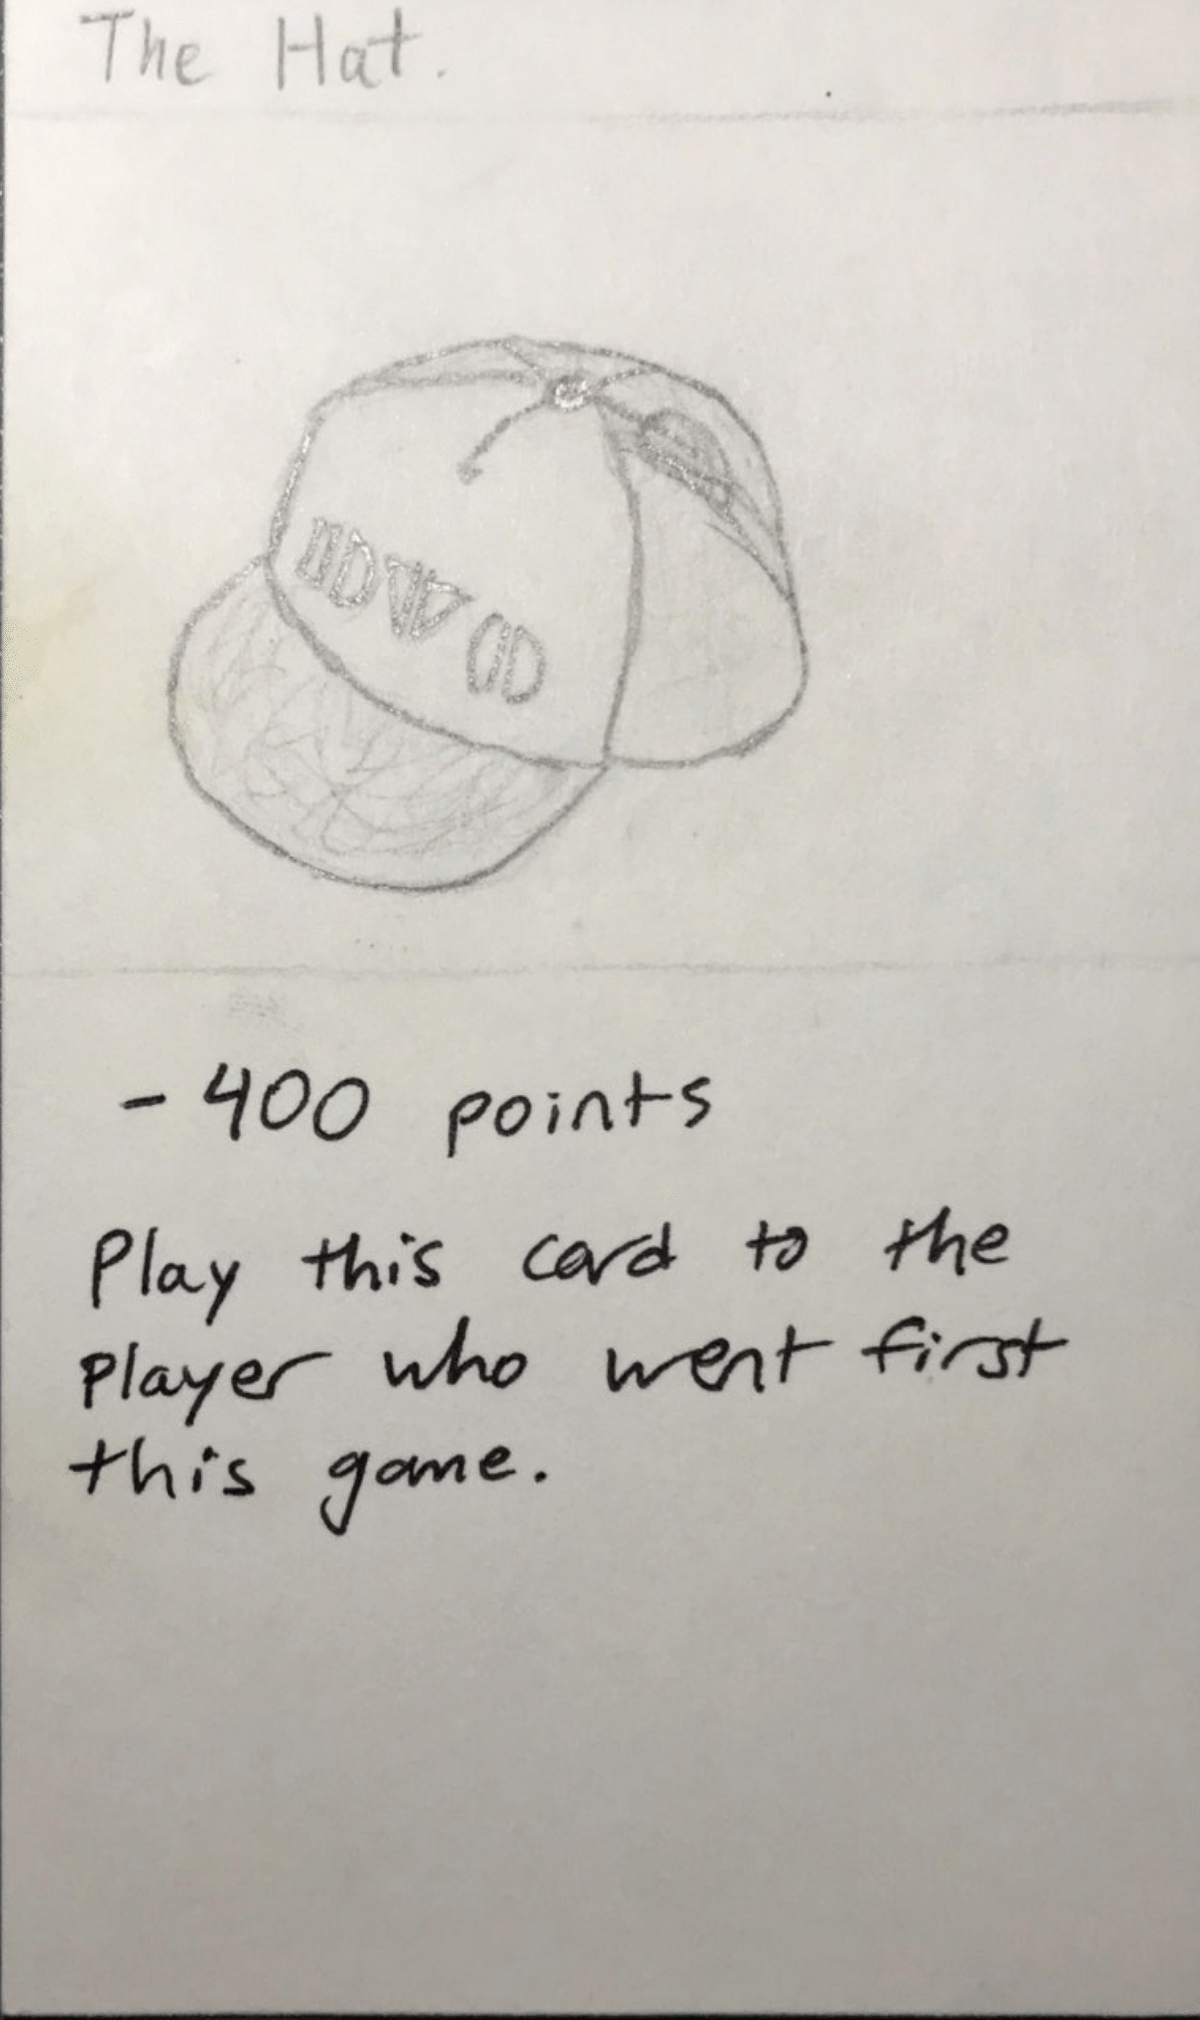 The Hat.
- 400 points
Play this card to the
player who went first
this game.